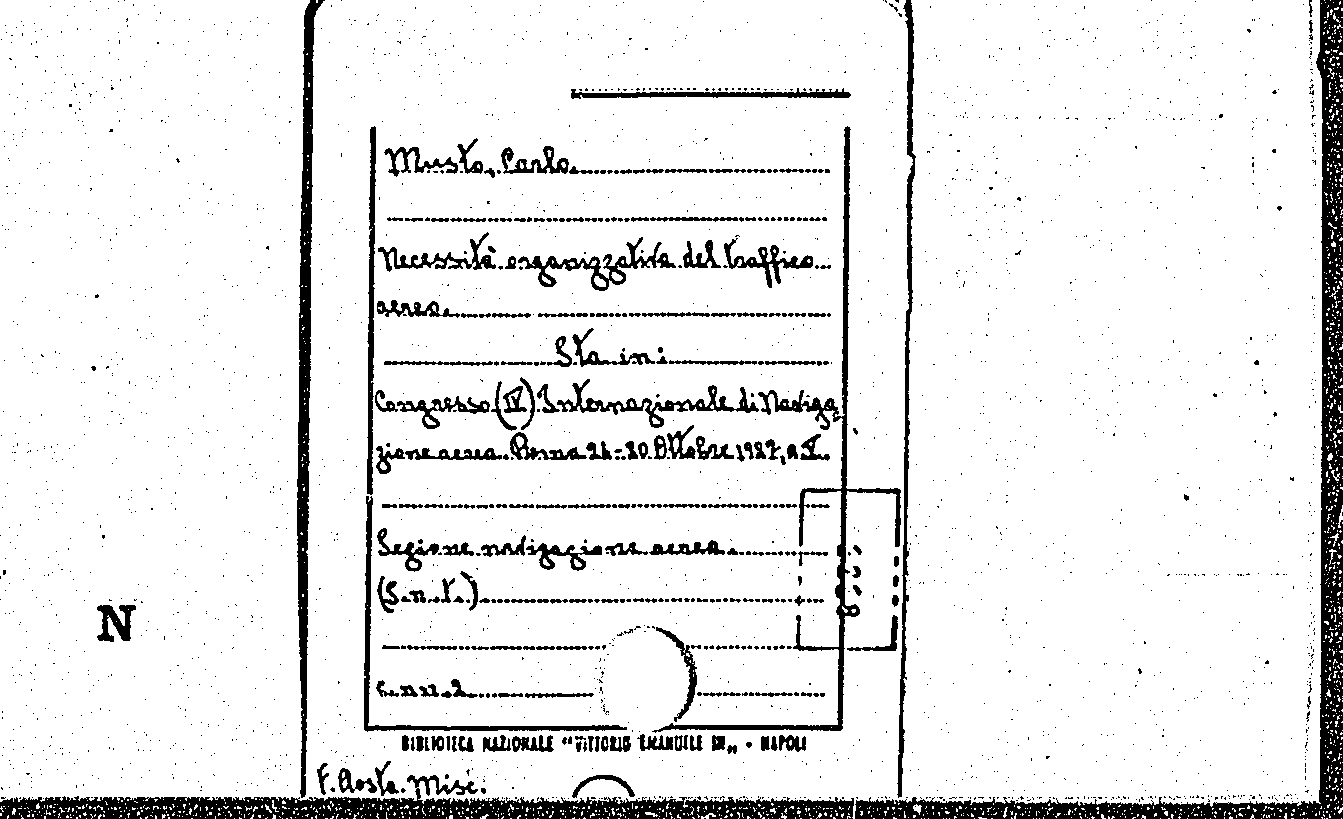 Musto, Carlo.
Necessità organizzativa del traffico
aereo.
Sta in:
Congresso (IV) Internazionale di Naviga
zione aerea. Roma 24-30 Ottobre 1927, a V.
Sezione navigazione aerea.
(S.n.t.)
c.nn.2
BIBLIOTECA NAZIONALE "VITTORIO EMANUELE III" - NAPOLI
F. Aosta. Misc.
N